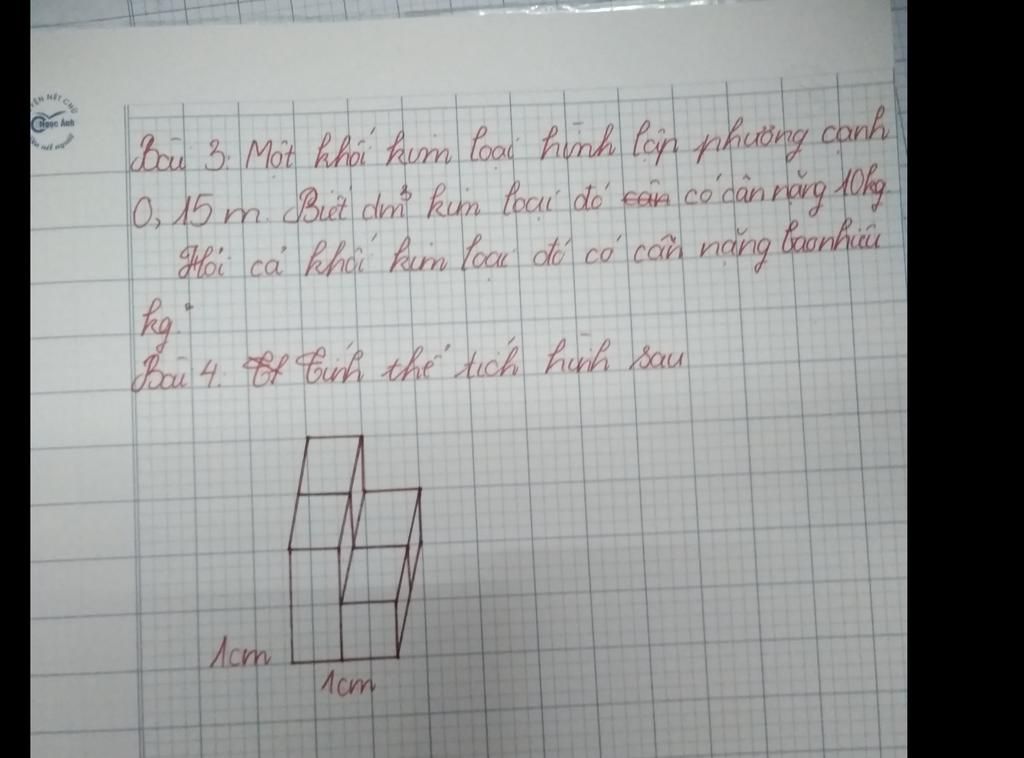 Ngọc Ánh
Bài 3. Một khối kim loại hình lập phương cạnh
0,15m. Biết dm³ kim loại đó có cân nặng 10kg
Hỏi cả khối kim loại đó có cân nặng baonhiêu
kg?
Bài 4. tính thể tích hình sau
1cm
1cm